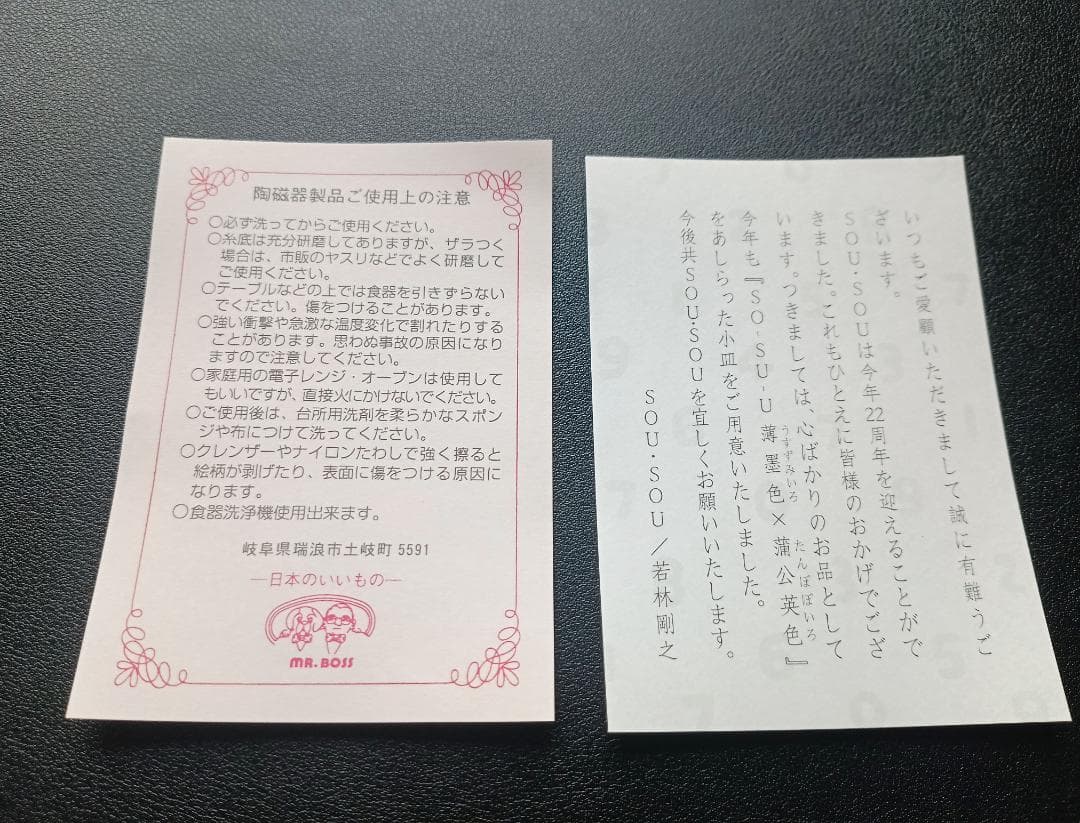 陶磁器製品ご使用上の注意
○必ず洗ってからご使用ください。
○糸底は充分研磨してありますが、ザラつく
場合は、市販のヤスリなどでよく研磨して
ご使用ください。
○テーブルなどの上では食器を引きずらない
でください。傷をつけることがあります。
○強い衝撃や急激な温度変化で割れたりする
ことがあります。思わぬ事故の原因になり
ますので注意してください。
○家庭用の電子レンジ・オーブンは使用して
もいいですが、直接火にかけないでください。
○ご使用後は、台所用洗剤を柔らかなスポン
ジや布につけて洗ってください。
○クレンザーやナイロンたわしで強く擦ると
絵柄が剥げたり、表面に傷をつける原因に
なります。
○食器洗浄機使用出来ます。
岐阜県瑞浪市土岐町 5591
―日本のいいもの―
MR. BOSS
いつもご愛顧いただきまして誠に有難うご
ざいます。
SOU・SOUは今年22周年を迎えることがで
きました。これもひとえに皆様のおかげでござ
います。つきましては、心ばかりのお品として
今年も『SO-SU-U 薄墨色×蒲公英色』
うすずみいろ たんぽぽいろ
をあしらった小皿をご用意いたしました。
今後共SOU・SOUを宜しくお願いいたします。
SOU・SOU/若林剛之